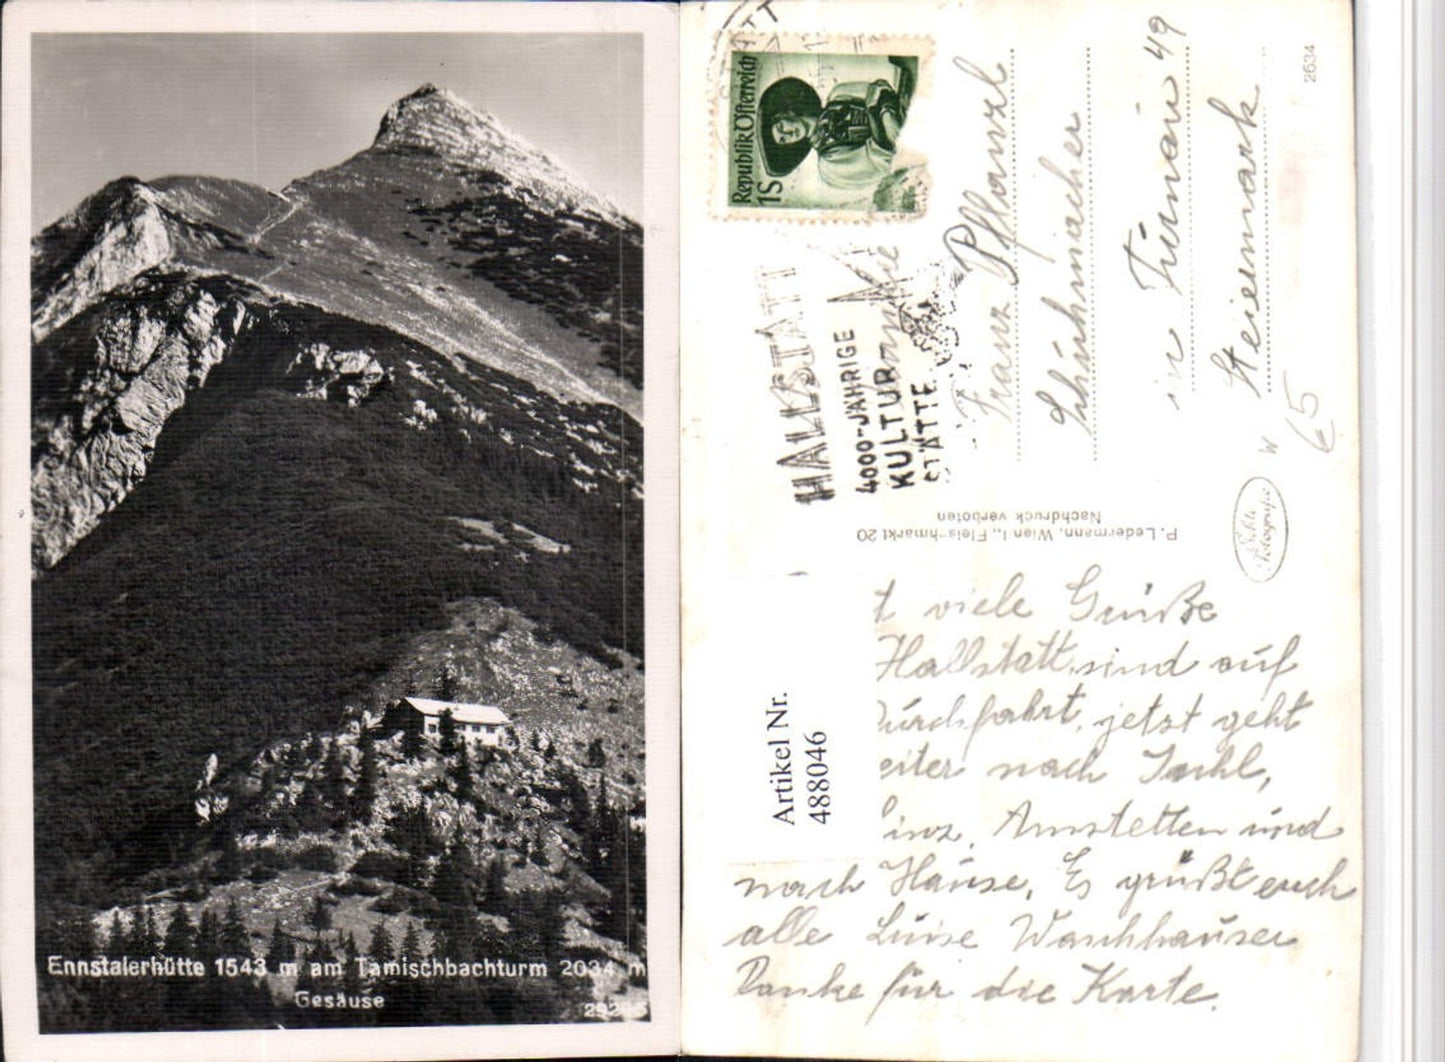 Ennstalerhütte 1543 m am Tamischbachturm 2034 m
Gesäuse
Republik Österreich
1S
HALLSTATT
4000-JÄHRIGE
KULTUR
STÄTTE
Franz Pflanzl
Schuhmacher
in Turnau 49
Steiermark
2634
65
W
P. Ledermann, Wien I., Fleischmarkt 20
Nachdruck verboten
Echte
Fotografie
Artikel Nr.
488046
t viele Grüße
Hallstatt, sind auf
Durchfahrt, jetzt geht
eiter nach Ischl,
inz, Amstetten und
nach Hause. Es grüßt euch
alle Luise Waschhauser
Danke für die Karte.